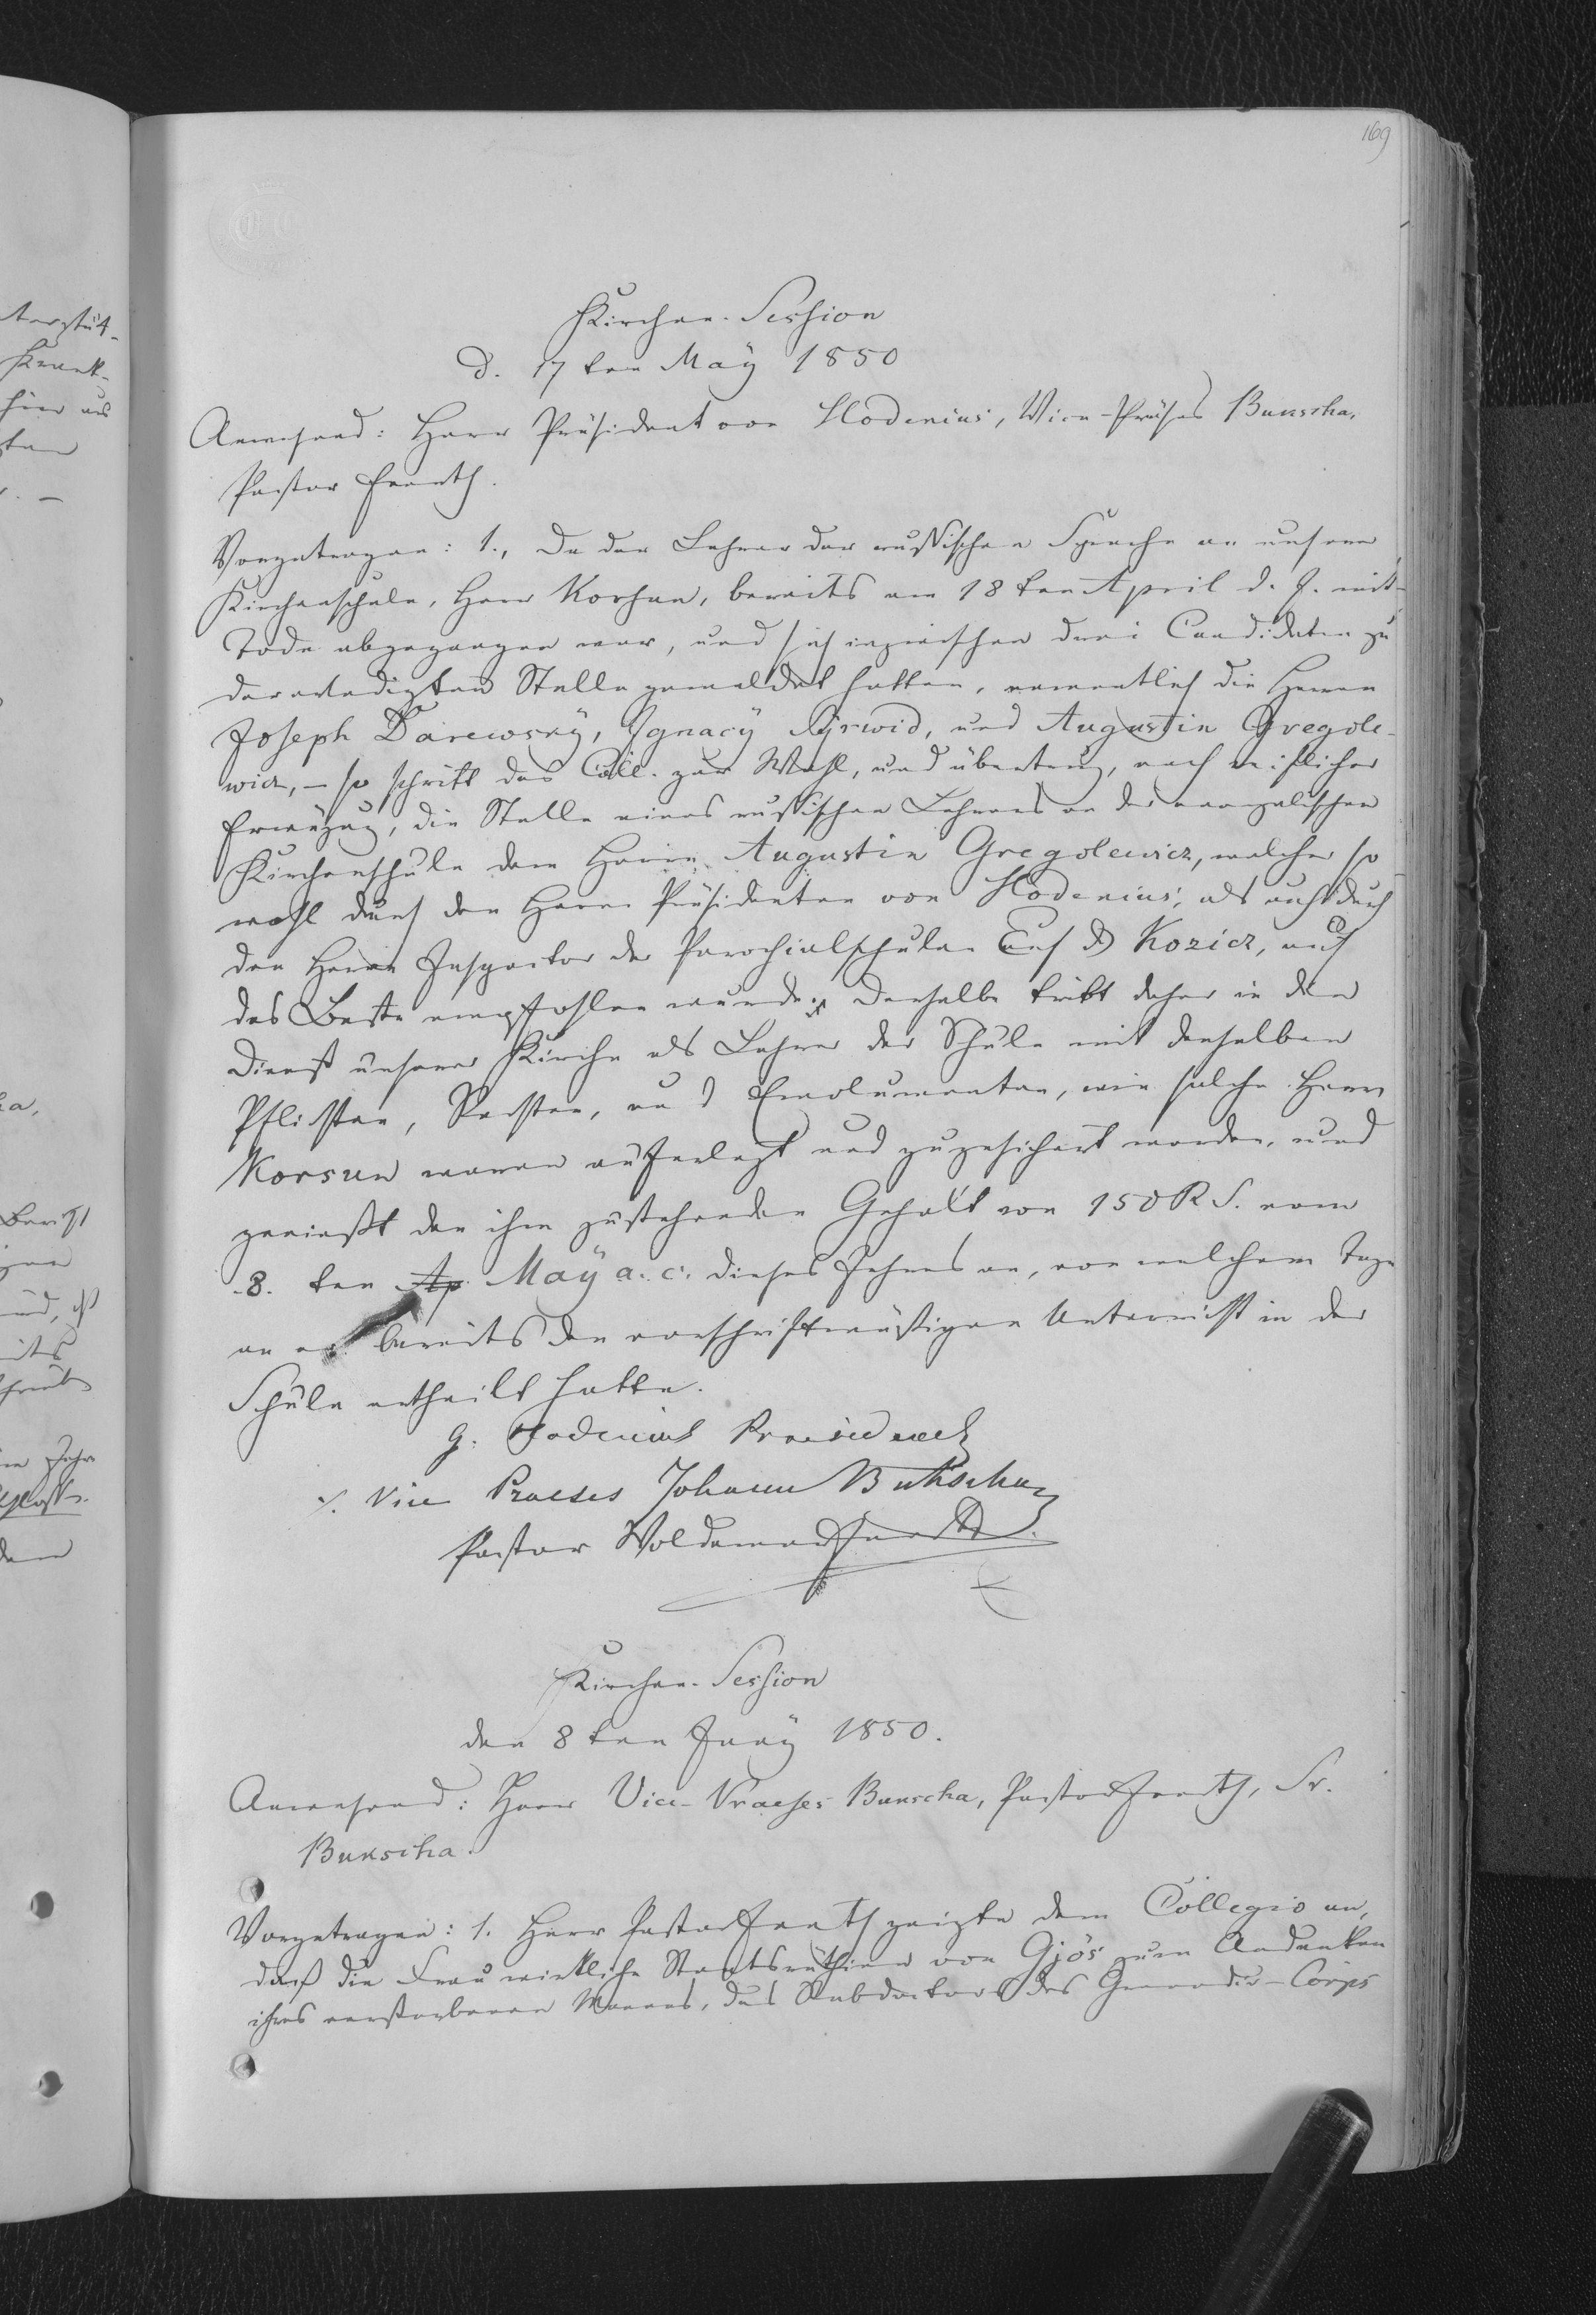 169
Kirchen-Session
d. 17ten Maÿ 1850
Anwesend: Herr Präsident von Hodenius, Vice-Präses Bukscha,
Pastor Everth.
Vorgetragen: 1., Da der Lehrer der russischen Sprache an unserer
Kirchenschule, Herr Korsun, bereits am 18ten April d. J. mit
Tode abgegangen war, und sich inzwischen drei Candidaten zu
der erledigten Stelle gemeldet hatten, namentlich die Herren
Joseph Darewsky, Ignacÿ Kyrwid, und Augustin Gregole-
wicz, – so schritt das Coll. zur Wahl, und übertrug, nach reiflicher
Erwägung, die Stelle eines russischen Lehrers an der evangelischen
Kirchenschule dem Herrn Augustin Gregolewicz, welcher so
wohl durch den Herrn Präsidenten von Hodenius, als auch durch
den Herrn Inspector der Parochialschulen Kozicz, auf
das Beste empfohlen wurde. Derselbe tritt daher in den
Dienst unserer Kirche als Lehrer der Schule mit denselben
Pflichten, Rechten, und Emolumenten, wie solche Herrn
Korsun waren auferlegt und zugesichert worden, und
genießt den ihm zustehenden Gehalt von 150 R S. vom
8. ten Ap Maÿ a. c. dieses Jahres an, von welchem Tage
an er bereits den vorschriftmäßigen Unterricht in der
Schule ertheilt hatte.
G. Hodenius Praesident
Vice Praeses Johann Bukscha
Pastor Woldemar Everth
Kirchen-Session
den 8ten Junÿ 1850.
Anwesend: Herr Vice-Praeses Bukscha, Pastor Everth, Sr.
Bukscha.
Vorgetragen: 1. Herr Pastor Everth zeigte dem Collegio an,
daß die Frau wirkliche Staatsräthin von Gjös zum Andenken
ihres verstorbenen Mannes, des Stabdoctors des Grenadier-Corps